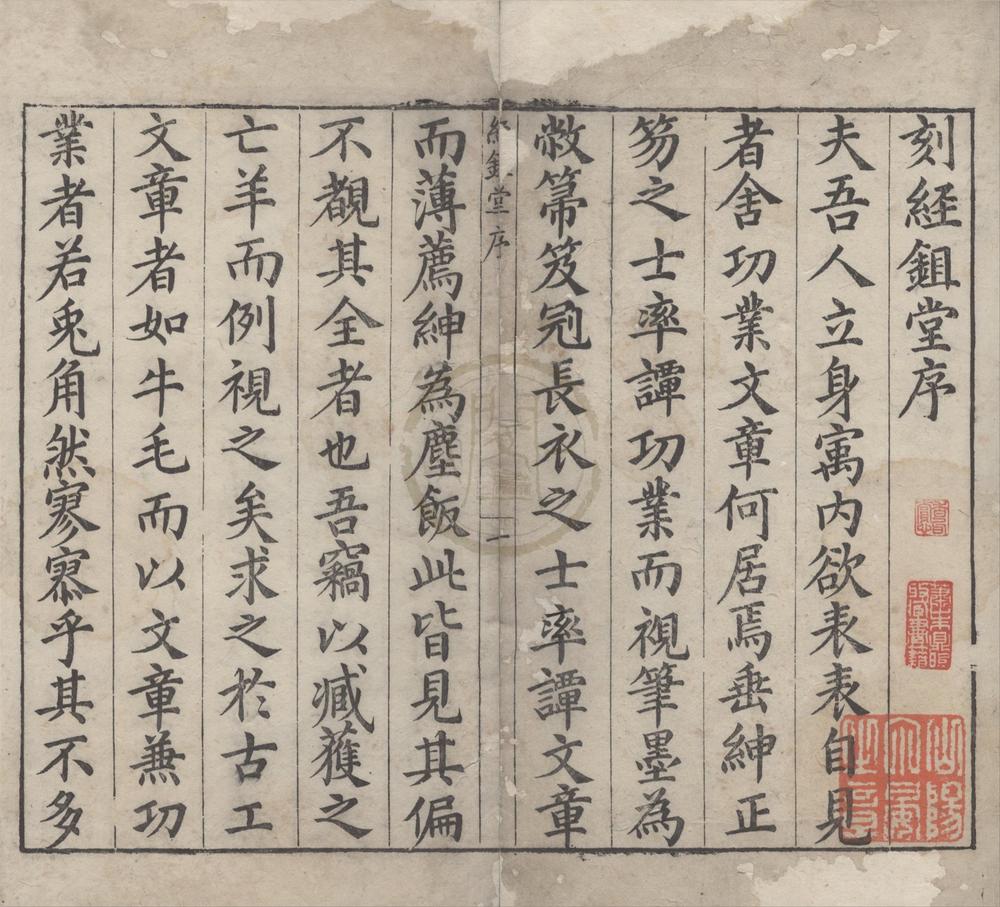 刻經鉏堂序
夫吾人立身寓内欲表表自見
者舍功業文章何居焉垂紳正
笏之士率譚功業而視筆墨為
敝箒笈冠長衣之士率譚文章
經鉏堂序
一
而薄薦紳為塵飯此皆見其偏
不覩其全者也吾竊以臧獲之
亡羊而例視之矣求之於古工
文章者如牛毛而以文章兼功
業者若兎角然寥寥乎其不多